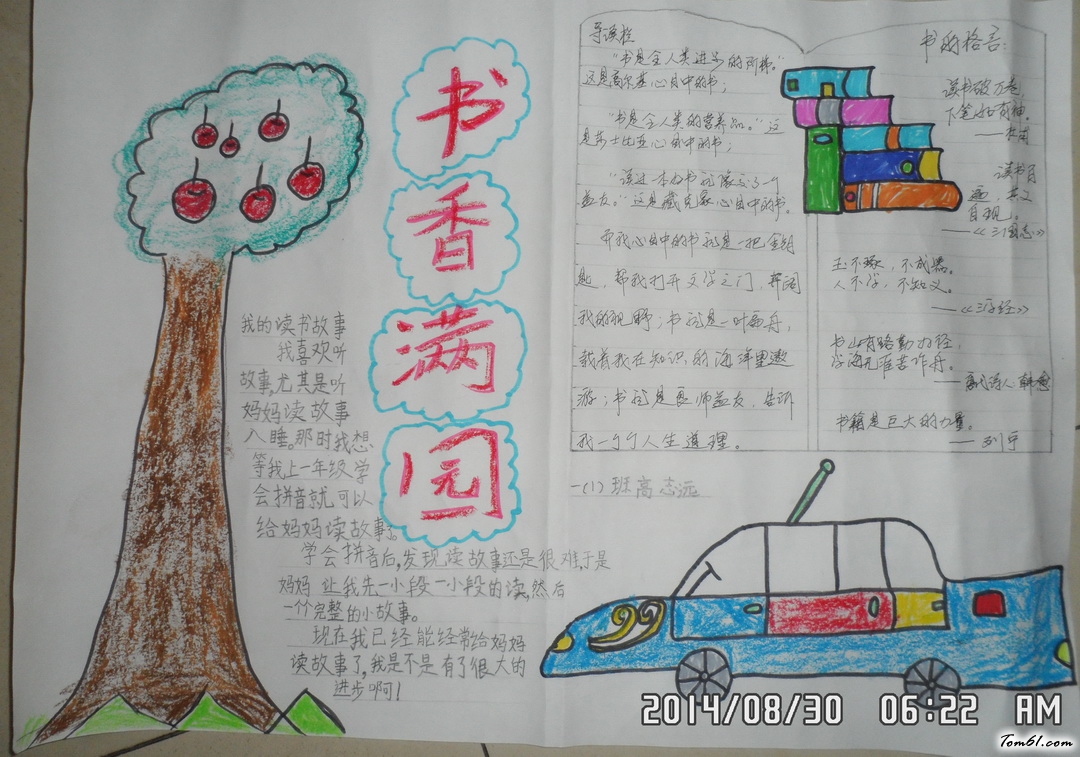 书
香
满
园
我的读书故事
我喜欢听
故事,尤其是听
妈妈读故事
入睡。那时我想
等我上一年级学
会拼音就可以
给妈妈读故事了。
学会拼音后,发现读故事还是很难,于是
妈妈 让我先一小段一小段的读,然后
一个完整的小故事。
现在我已经能经常给妈妈
读故事了,我是不是有了很大的
进步啊!
导读栏
“书是全人类进步的阶梯。”
这是高尔基心目中的书;
“书是全人类的营养品。”这
是莎士比亚心目中的书;
“读过一本好书就像交了一个
益友。”这是臧克家心目中的书。
而我心目中的书就是一把金钥
匙，帮我打开文学之门，开阔
我的视野；书就是一叶扁舟，
载着我在知识的海洋里遨
游；书就是良师益友，告诉
我一个个人生道理。
书的格言:
读书破万卷，
下笔如有神。
——杜甫
读书百
遍，其义
自现。
——《三国志》
玉不琢，不成器。
人不学，不知义。
——《三字经》
书山有路勤为径，
学海无崖苦作舟。
——唐代诗人 韩愈
书籍是巨大的力量。
——列宁
一(1)班高志远
2014/08/30 06:22 AM
Tom61.com